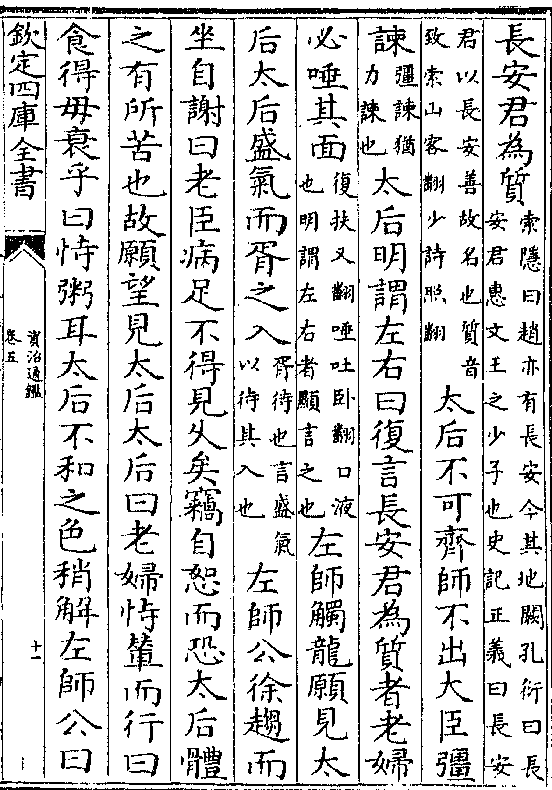 長安君為質索隱曰趙亦有長安今其地闕孔衍曰長安君惠文王之少子也史記正義曰長安
君以長安善故名也質音致索山客翻少詩照翻太后不可齊師不出大臣彊
諫彊諫猶力諫也太后明謂左右曰復言長安君為質者老婦
必唾其面復扶又翻唾吐卧翻口液也明謂左右者顯言之也左師觸龍願見太
后太后盛氣而胥之入胥待也言盛氣以待其入也左師公徐趨而
坐自謝曰老臣病足不得見久矣竊自恕而恐太后體
之有所苦也故願望見太后太后曰老婦恃輦而行曰
食得毋衰乎曰恃粥耳太后不和之色稍解左師公曰
欽定四庫全書
資治通鑑
卷五
十一